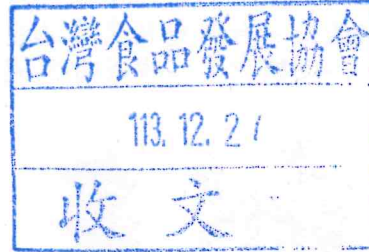 台灣食品發展協會
113. 12. 2
收文